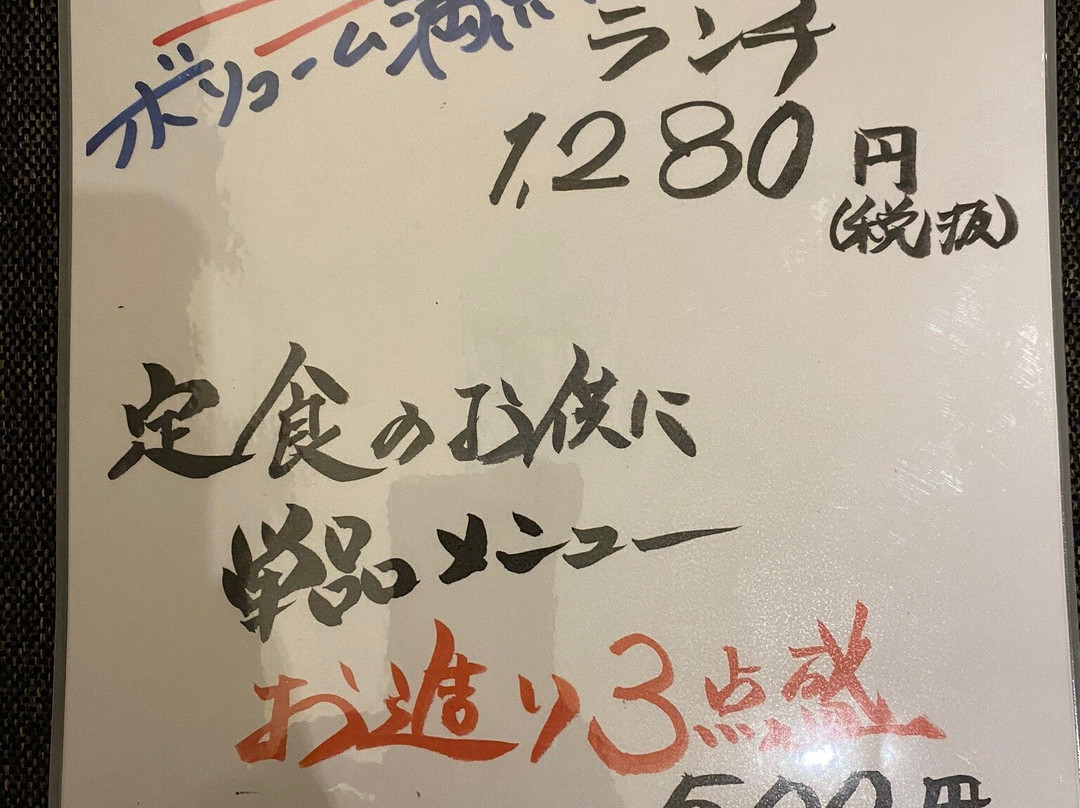 ボリューム満点
ランチ
1,280円
(税抜)
定食のお供に
単品メニュー
お造り3点盛
500円